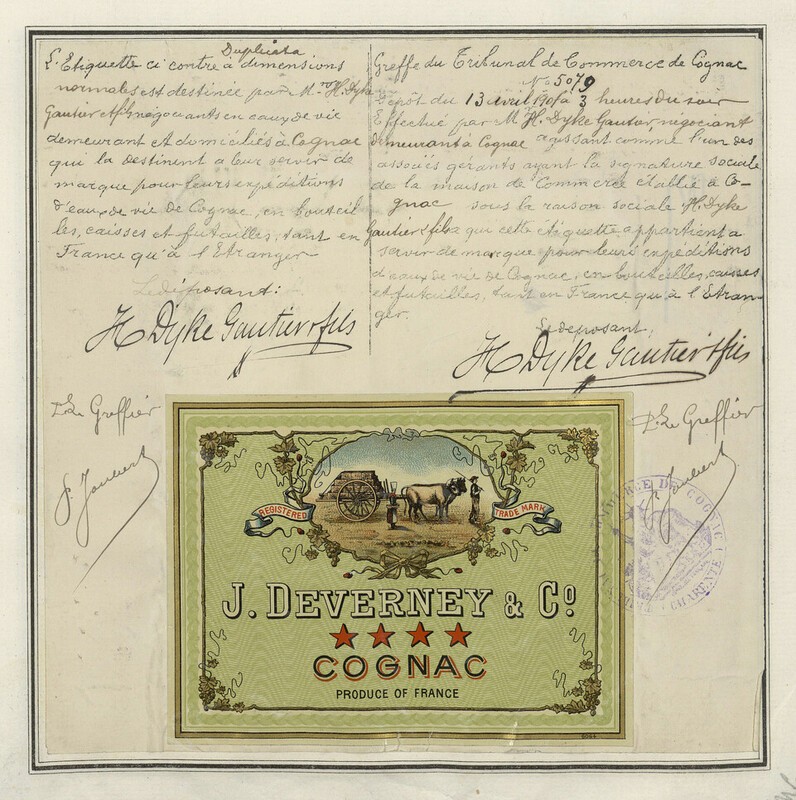 Duplicata
L'Etiquette ci contre à dimensions
normales est destinée par M. H. Dyke
Gautier et fils négociants en eaux de vie
demeurant et domiciliés à Cognac
qui la destinent à leur servir de
marque pour leurs expéditions
d'eaux de vie de Cognac, en bouteil
les, caisses et futailles, tant en
France qu'à l'Etranger
Le déposant:
H Dyke Gautier & fils
Greffe du Tribunal de Commerce de Cognac
No 5079
Dépôt du 13 avril 1901 à 3 heures du soir
Effectué par M H. Dyke Gautier, négociant
demeurant à Cognac agissant comme l'un des
associés gérants ayant la signature sociale
de la maison de Commerce établie à Co-
gnac sous la raison sociale H. Dyke
Gautier & fils à qui cette étiquette appartient a
servir de marque pour leurs expéditions
d'eaux de vie de Cognac, en bouteilles, caisses
et futailles, tant en France qu'à l'Etran-
ger.
Le déposant,
H Dyke Gautier & fils
P. Le Greffier
P. Le Greffier
J. Joubert
J. Joubert
REGISTERED
TRADE MARK
J. DEVERNEY & Co
COGNAC
PRODUCE OF FRANCE
COMMERCE DE COGNAC
CHARENTE